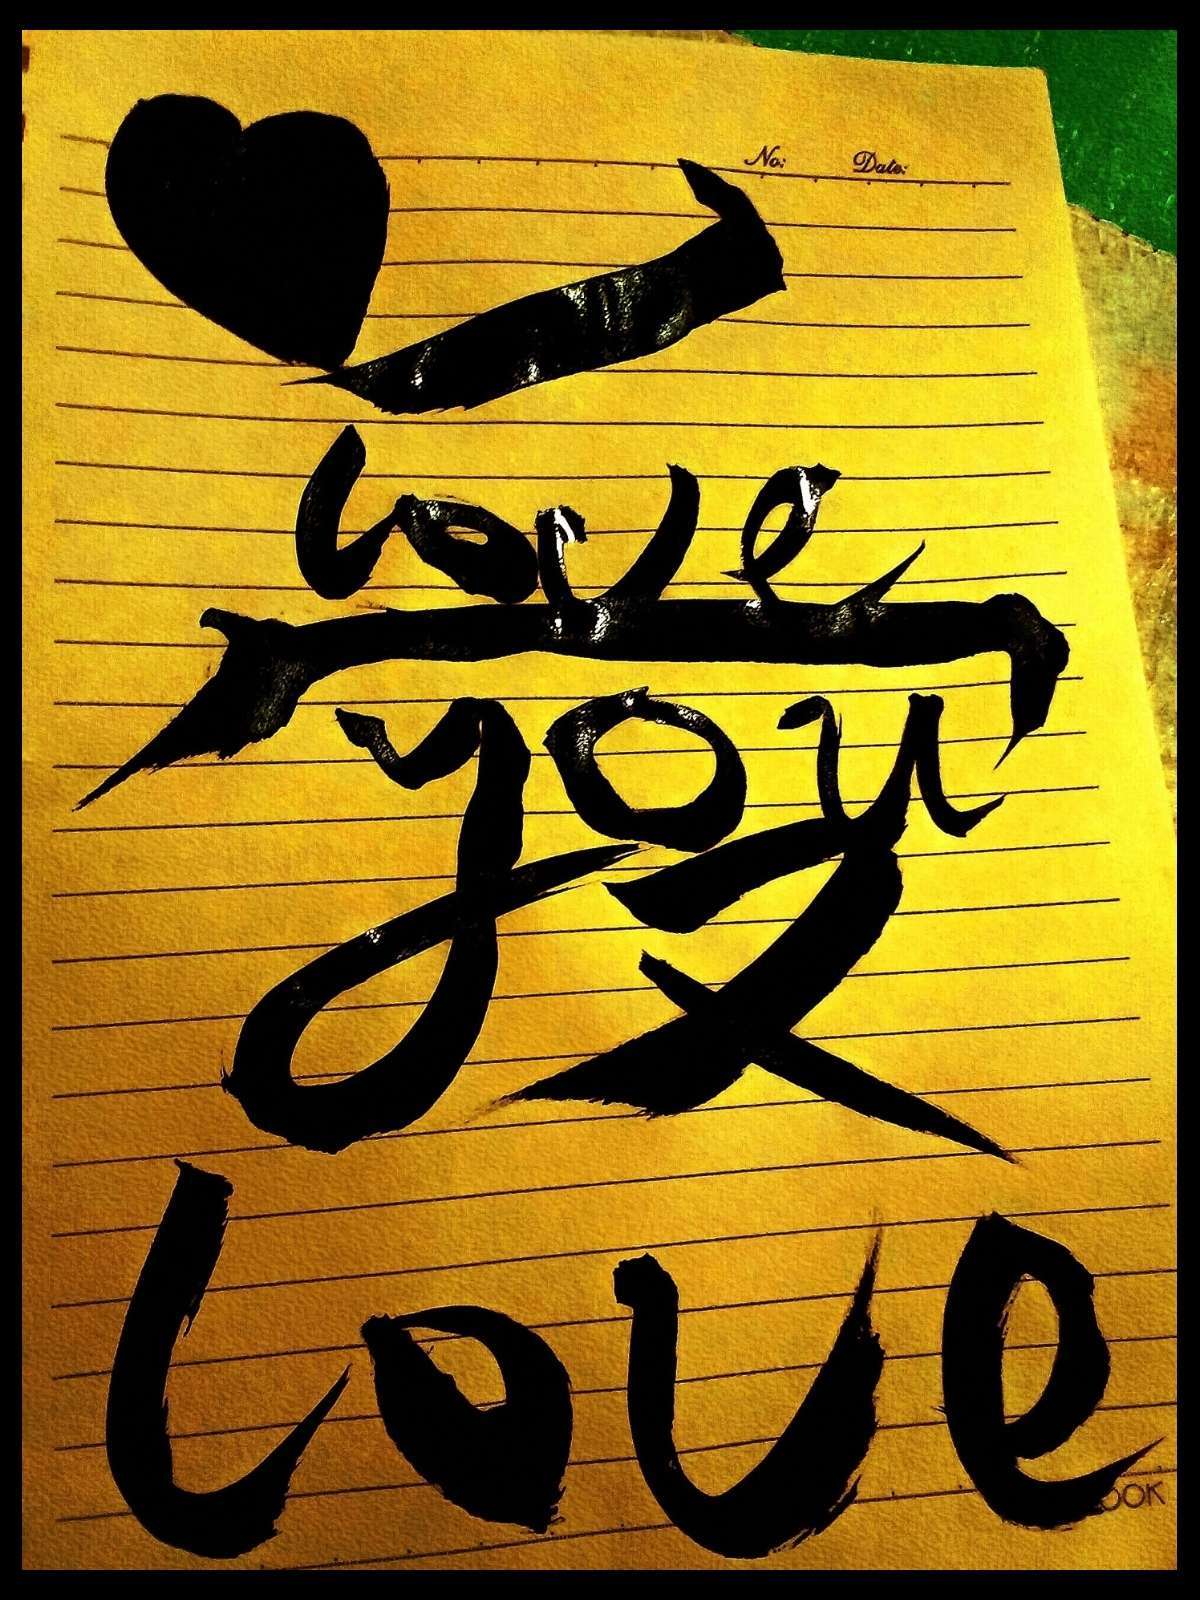 No: Date:
love
you
love
OOK